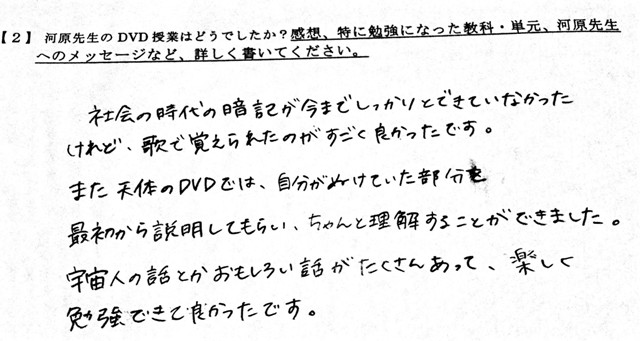 【2】 河原先生のDVD授業はどうでしたか?感想、特に勉強になった教科・単元、河原先生
へのメッセージなど、詳しく書いてください。
社会の時代の暗記が今までしっかりとできていなかった
けれど、歌で覚えられたのがすごく良かったです。
また天体のDVDでは、自分がぬけていた部分を
最初から説明してもらい、ちゃんと理解することができました。
宇宙人の話とかおもしろい話がたくさんあって、楽しく
勉強できて良かったです。